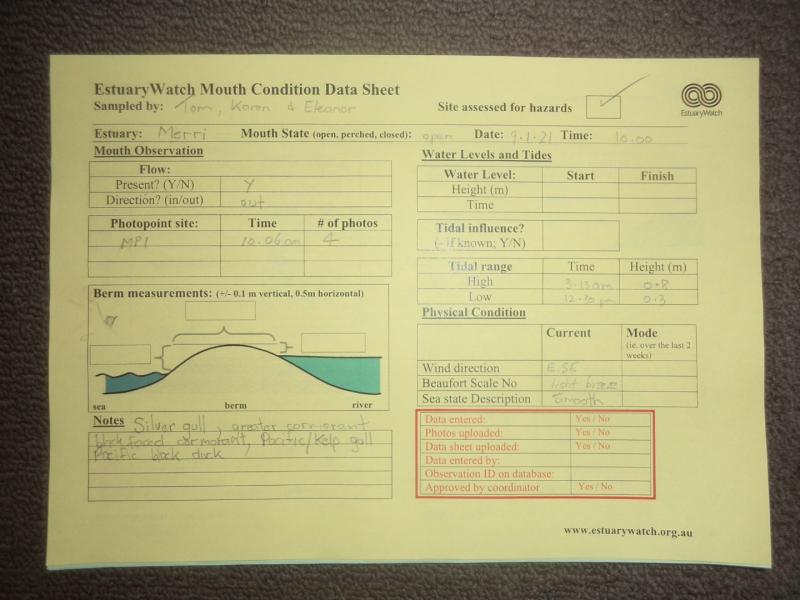 EstuaryWatch Mouth Condition Data Sheet
Sampled by: Tom, Karen & Eleanor
Site assessed for hazards ✓
EstuaryWatch
Estuary: Merri Mouth State (open, perched, closed): open Date: 9.1.21 Time: 10.00
Mouth Observation
Flow:
Present? (Y/N) Y
Direction? (in/out) out
Photopoint site: Time # of photos
MP1 10.06am 4
Berm measurements: (+/- 0.1 m vertical, 0.5m horizontal)
sea berm river
Notes Silver gull, greater cormorant
black faced cormorant, Pacific/Kelp gull
Pacific black duck
Water Levels and Tides
Water Level: Start Finish
Height (m)
Time
Tidal influence?
(- if known; Y/N)
Tidal range Time Height (m)
High 3.13am 0.8
Low 12.30pm 0.3
Physical Condition
Current Mode
(ie. over the last 2
weeks)
Wind direction E.SE
Beaufort Scale No light breeze
Sea state Description Smooth
Data entered: Yes / No
Photos uploaded: Yes / No
Data sheet uploaded: Yes / No
Data entered by:
Observation ID on database:
Approved by coordinator Yes / No
www.estuarywatch.org.au